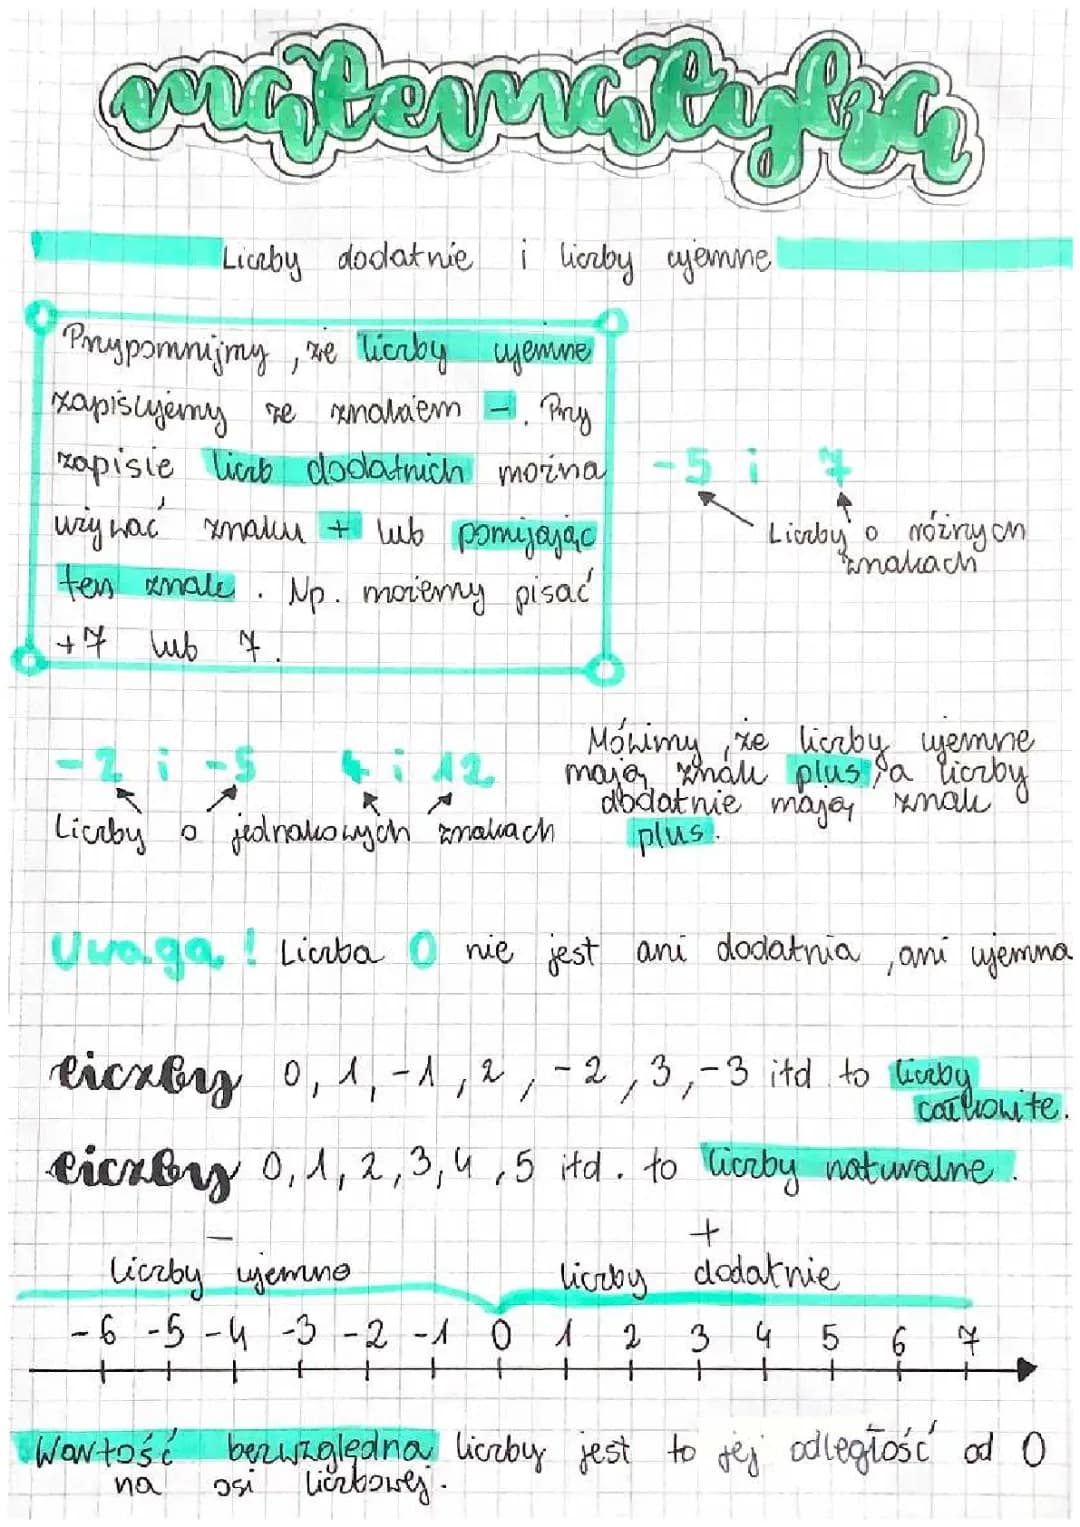 matematyka
Liczby dodatnie i liczby ujemne
Przypomnijmy, że liczby ujemne
zapisujemy ze znakiem -. Przy
zapisie liczb dodatnich można
używać znaku + lub pomijając
ten znak. Np. możemy pisać
+7 lub 7.
-5 i 7
Liczby o różnych
znakach
-2 i -5 4 i 12
Liczby o jednakowych znakach
Mówimy, że liczby ujemne
mają znak plus, a liczby
dodatnie mają znak
plus.
Uwaga! Liczba 0 nie jest ani dodatnia, ani ujemna
liczby 0, 1, -1, 2, -2, 3, -3 itd to liczby
całkowite.
liczby 0, 1, 2, 3, 4, 5 itd. to liczby naturalne.
- +
liczby ujemne liczby dodatnie
-6 -5 -4 -3 -2 -1 0 1 2 3 4 5 6 7
Wartość bezwzględna liczby jest to jej odległość od 0
na osi liczbowej.